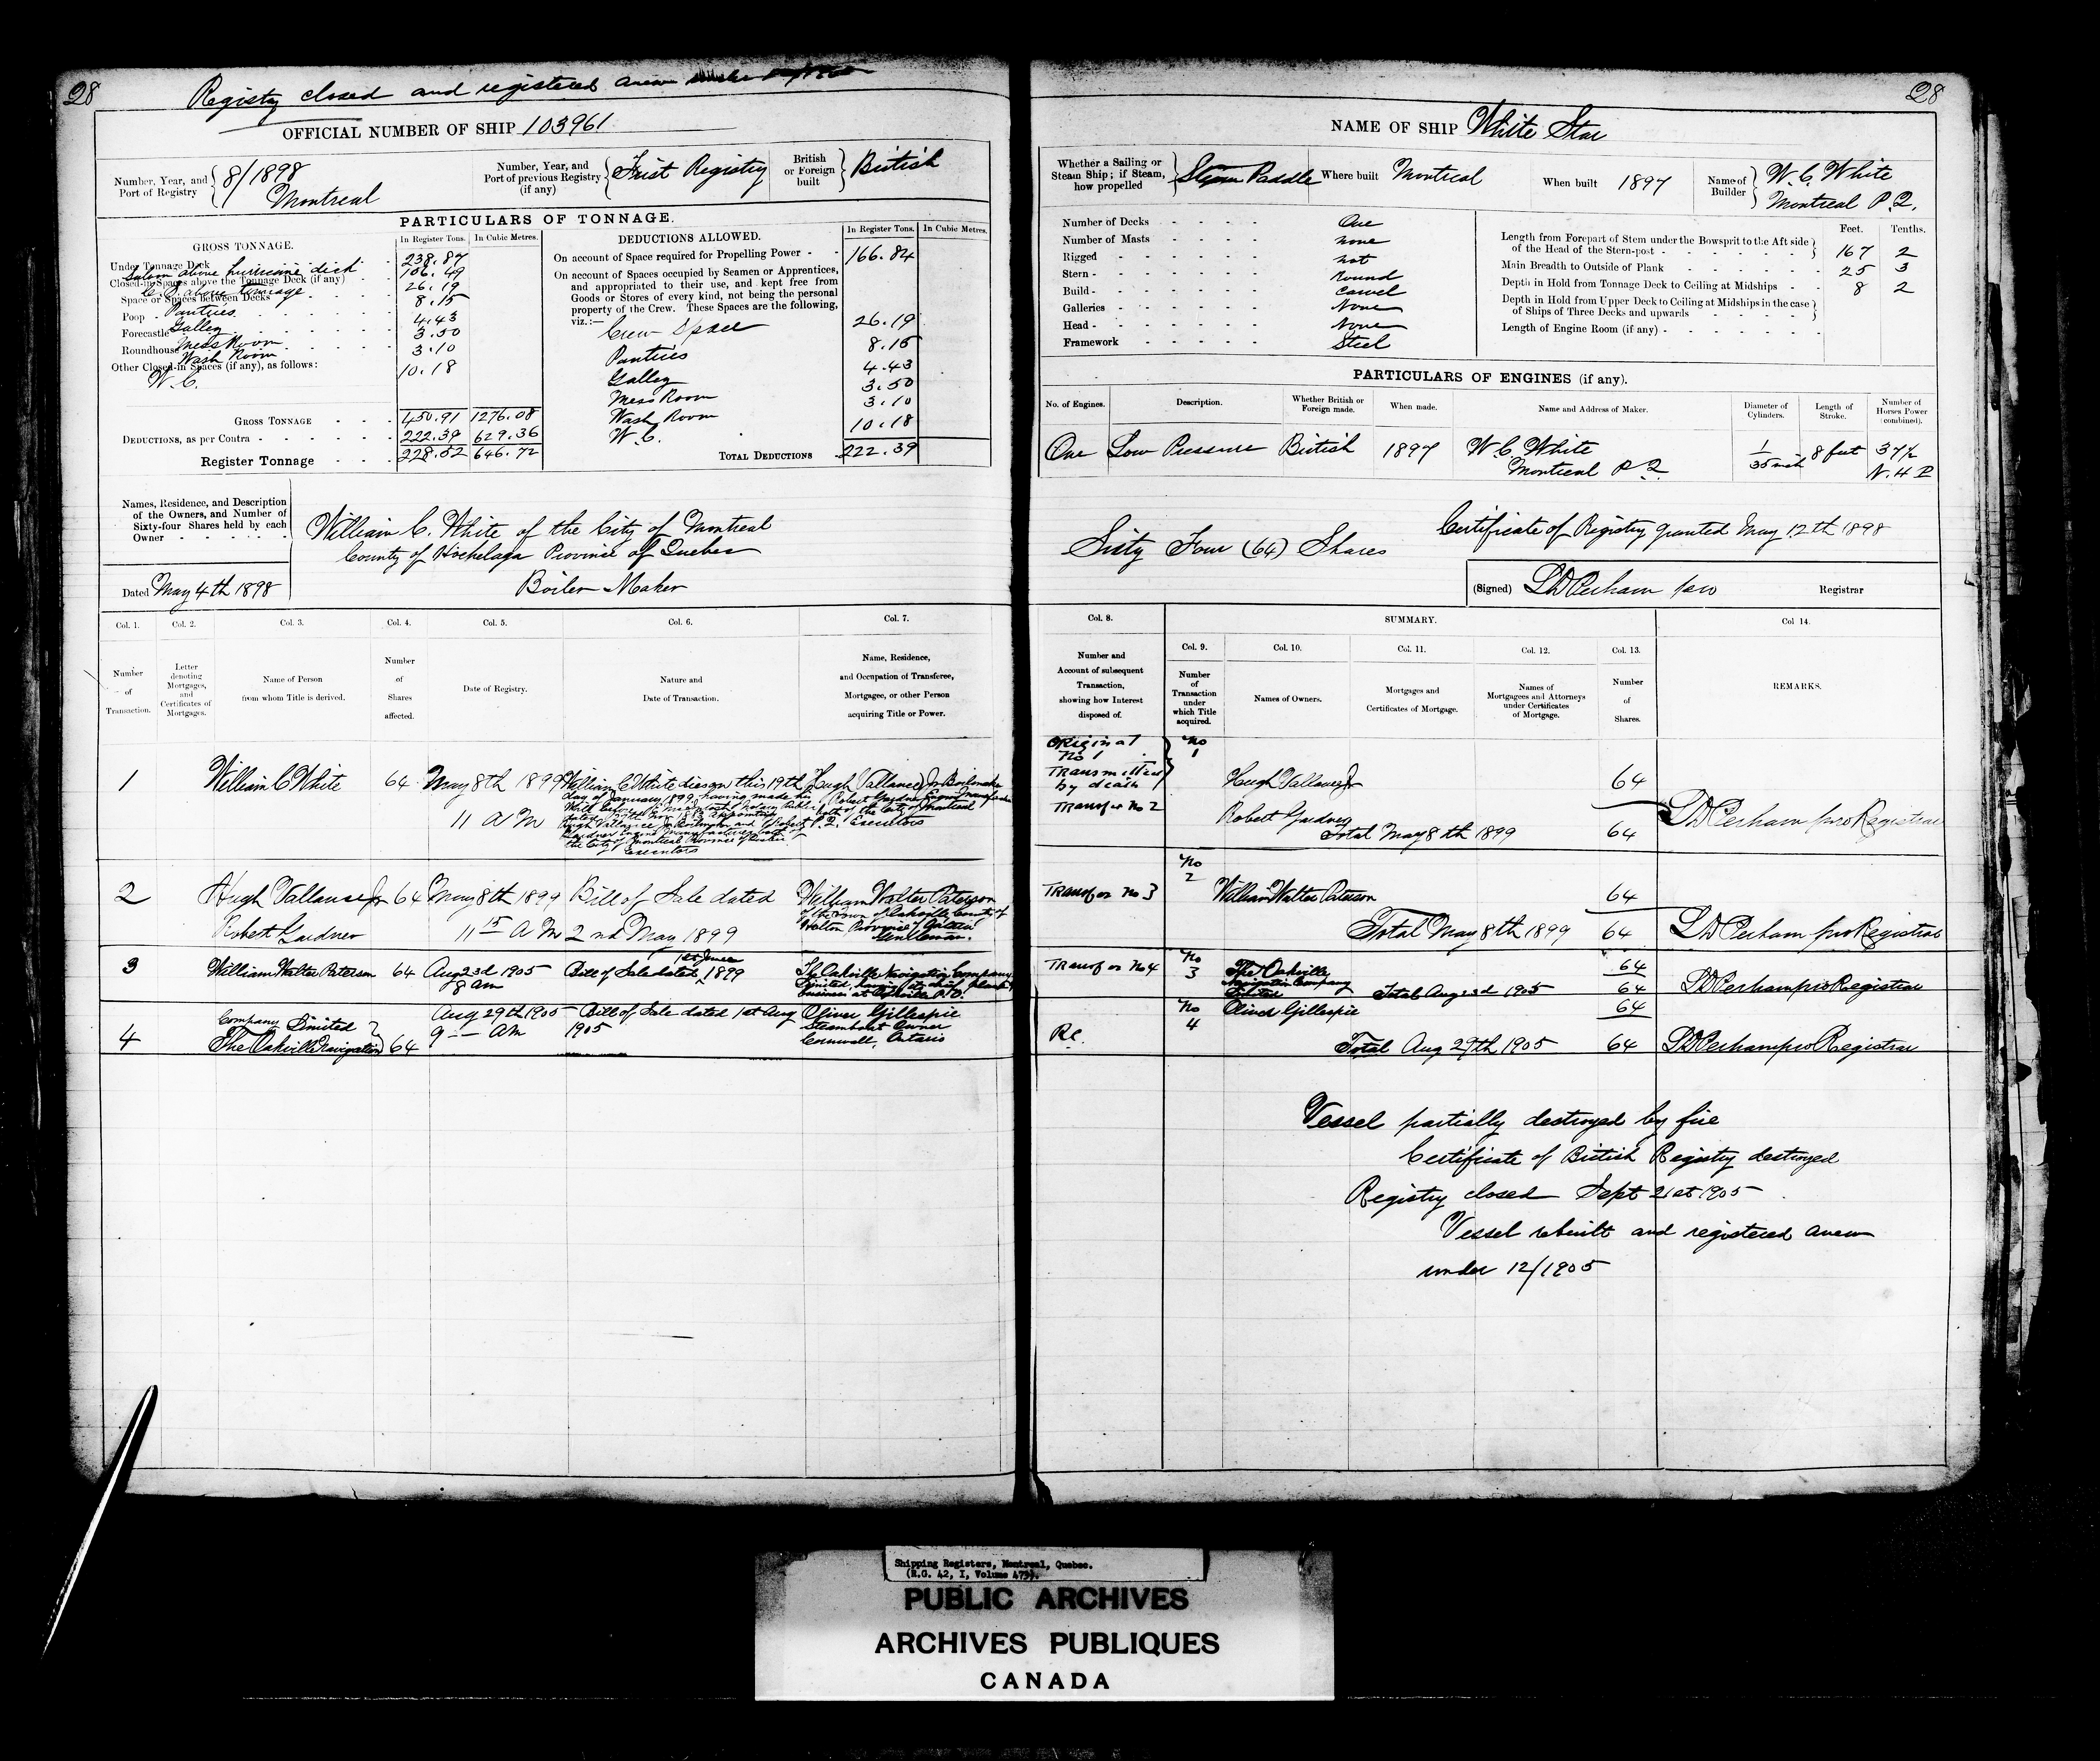 28
Registry closed and registered anew
OFFICIAL NUMBER OF SHIP 103961
Number, Year, and Port of Registry 8/1898 Montreal
Number, Year, and Port of previous Registry (if any) First Registry
British or Foreign built British
PARTICULARS OF TONNAGE.
GROSS TONNAGE. In Register Tons. In Cubic Metres.
Under Tonnage Deck 238.87
Closed-in Spaces above the Tonnage Deck (if any)
Saloon above hurricane deck 106.49
Space or Spaces between Decks
C. S. above tonnage 26.19
Poop - Pantries 8.15
Forecastle Galley 4.43
Roundhouse Mess Room 3.50
Wash Room 3.10
Other Closed-in Spaces (if any), as follows:
W.C. 10.18
GROSS TONNAGE 450.91 1276.08
DEDUCTIONS, as per Contra 222.39 629.36
Register Tonnage 228.52 646.72
DEDUCTIONS ALLOWED. In Register Tons. In Cubic Metres.
On account of Space required for Propelling Power 166.84
On account of Spaces occupied by Seamen or Apprentices,
and appropriated to their use, and kept free from
Goods or Stores of every kind, not being the personal
property of the Crew. These Spaces are the following,
viz.:—
Crew Space 26.19
Pantries 8.15
Galley 4.43
Mess Room 3.50
Wash Room 3.10
W.C. 10.18
TOTAL DEDUCTIONS 222.39
Names, Residence, and Description
of the Owners, and Number of
Sixty-four Shares held by each
Owner
Dated May 4th 1898
William C. White of the City of Montreal
County of Hochelaga Province of Quebec
Boiler Maker
Col. 1. Col. 2. Col. 3. Col. 4. Col. 5. Col. 6. Col. 7.
Number of Transaction.
Letter denoting Mortgages, and Certificates of Mortgages.
Name of Person from whom Title is derived.
Number of Shares affected.
Date of Registry.
Nature and Date of Transaction.
Name, Residence, and Occupation of Transferee, Mortgagee, or other Person acquiring Title or Power.
1 William C White 64 May 8th 1899 11 A M
William C White died on this 19th
day of January 1899 having made his
Will
Executors
Hugh Vallance Jr Boilermaker
Robert Gardner
both of the City of Montreal
P.Q. Executors
2 Hugh Vallance Jr 64 May 8th 1899 Bill of Sale dated William Walter Paterson
Robert Gardner 11 15 A M 2nd May 1899
of the Town of Oakville County of
Halton Province of Ontario
Gentleman.
3 William Walter Paterson 64 Aug 23d 1905 8 am Bill of Sale dated 1st June 1899
The Oakville Navigation Company
Limited, having its chief place of
business at Oakville
4 The Oakville Navigation Company Limited 64
Aug 29th 1905 9 — AM Bill of Sale dated 1st Aug 1905
Oliver Gillespie
Steamboat Owner
Cornwall, Ontario
28
NAME OF SHIP White Star
Whether a Sailing or Steam Ship; if Steam, how propelled Steam Paddle
Where built Montreal
When built 1897
Name of Builder W. C. White Montreal P.Q.
Number of Decks One
Number of Masts none
Rigged not
Stern Round
Build Carvel
Galleries None
Head None
Framework Steel
Feet. Tenths.
Length from Forepart of Stem under the Bowsprit to the Aft side
of the Head of the Stern-post 167 2
Main Breadth to Outside of Plank 25 3
Depth in Hold from Tonnage Deck to Ceiling at Midships 8 2
Depth in Hold from Upper Deck to Ceiling at Midships in the case
of Ships of Three Decks and upwards
Length of Engine Room (if any)
PARTICULARS OF ENGINES (if any).
No. of Engines. Description. Whether British or Foreign made. When made. Name and Address of Maker. Diameter of Cylinders. Length of Stroke. Number of Horses Power (combined).
One Low Pressure British 1897 W. C. White Montreal P Q. 1 35 inch 8 feet 37½ N.H.P
Sixty Four (64) Shares
Certificate of Registry granted May 12th 1898
(Signed) Registrar
Col. 8. SUMMARY. Col 14.
Col. 9. Col. 10. Col. 11. Col. 12. Col. 13.
Number and Account of subsequent Transaction, showing how Interest disposed of.
Number of Transaction under which Title acquired.
Names of Owners.
Mortgages and Certificates of Mortgage.
Names of Mortgagees and Attorneys under Certificates of Mortgage.
Number of Shares.
REMARKS.
Original No 1 Transmitted by death No 1 Hugh Vallance Jr 64
Transfer No 2 Robert Gardner
Total May 8th 1899 64 pro Registrar
Transfer No 3 No 2 William Walter Paterson 64
Total May 8th 1899 64 pro Registrar
Transfer No 4 No 3 The Oakville Navigation Company Limited 64
Total Aug 23d 1905 64 pro Registrar
No 4 Oliver Gillespie 64
Total Aug 29th 1905 64 pro Registrar
Vessel partially destroyed by fire
Certificate of British Registry destroyed
Registry closed Sept 21st 1905
Vessel rebuilt and registered anew
under 12/1905
Shipping Registers, Montreal, Quebec.
(R.G. 42, I, Volume
PUBLIC ARCHIVES
ARCHIVES PUBLIQUES
CANADA